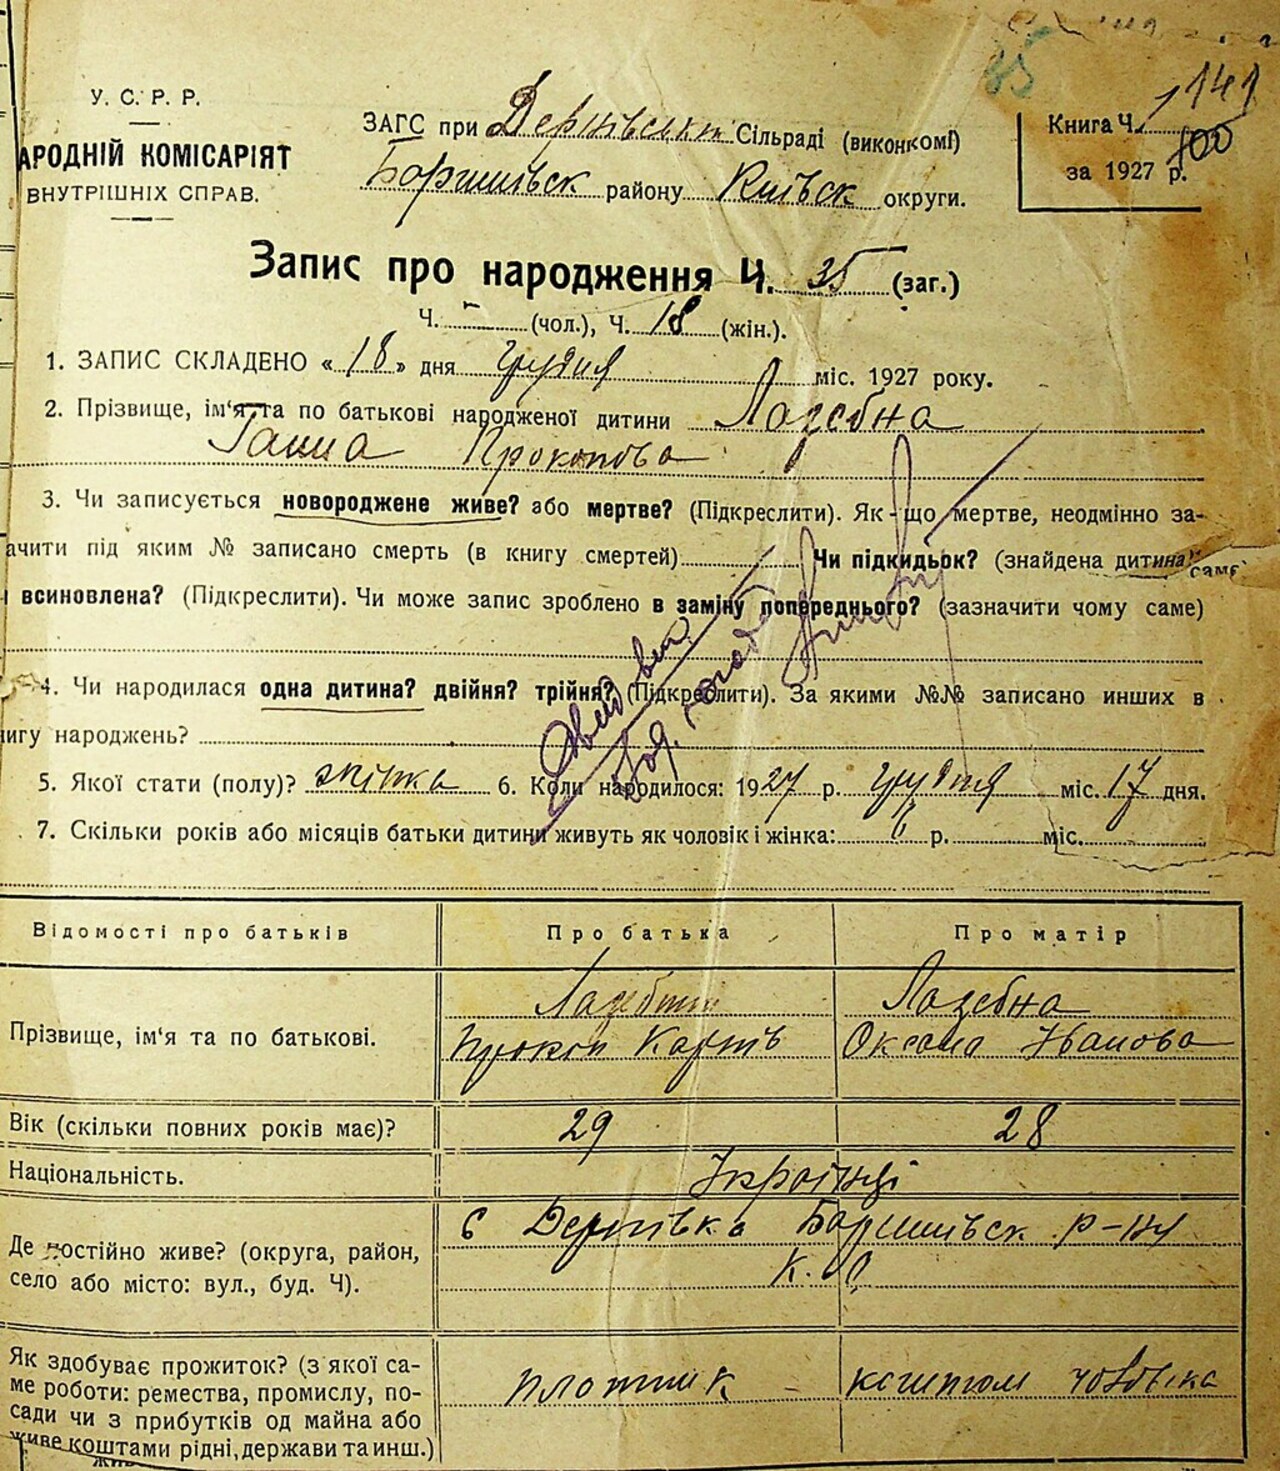 85
141
У. С. Р. Р.
АРОДНІЙ КОМІСАРІЯТ
ВНУТРІШНІХ СПРАВ.
ЗАГС при Дернівськім Сільраді (виконкомі)
Баришівськ району Київськ округи.
Книга Ч. 1
100
за 1927 р.
Запис про народження Ч. 35 (заг.)
Ч. – (чол.), Ч. 18 (жін.).
1. ЗАПИС СКЛАДЕНО «18» дня грудня міс. 1927 року.
2. Прізвище, ім'я та по батькові народженої дитини Лазебна
Ганна Прокопова
3. Чи записується новороджене живе? або мертве? (Підкреслити). Як-що мертве, неодмінно за-
ачити під яким № записано смерть (в книгу смертей) Чи підкидьок? (знайдена дитина)
саме
і всиновлена? (Підкреслити). Чи може запис зроблено в заміну попереднього? (зазначити чому саме)
4. Чи народилася одна дитина? двійня? трійня? (Підкреслити). За якими №№ записано инших в
нигу народжень?
5. Якої стати (полу)? жінка 6. Коли народилося: 1927 р. грудня міс. 17 дня.
7. Скільки років або місяців батьки дитини живуть як чоловік і жінка: 6 р. міс.
Відомості про батьків Про батька Про матір
Прізвище, ім'я та по батькові.
Лазебний Лазебна
Прокоп Карпів Оксана Іванова
Вік (скільки повних років має)? 29 28
Національність. Українці
Де постійно живе? (округа, район,
село або місто: вул., буд. Ч).
с Дернівка Баришівськ р-ну
К. О
Як здобуває прожиток? (з якої са-
ме роботи: ремества, промислу, по-
сади чи з прибутків од майна або
живе коштами рідні, держави та инш.)
плотник – коштом чоловіка